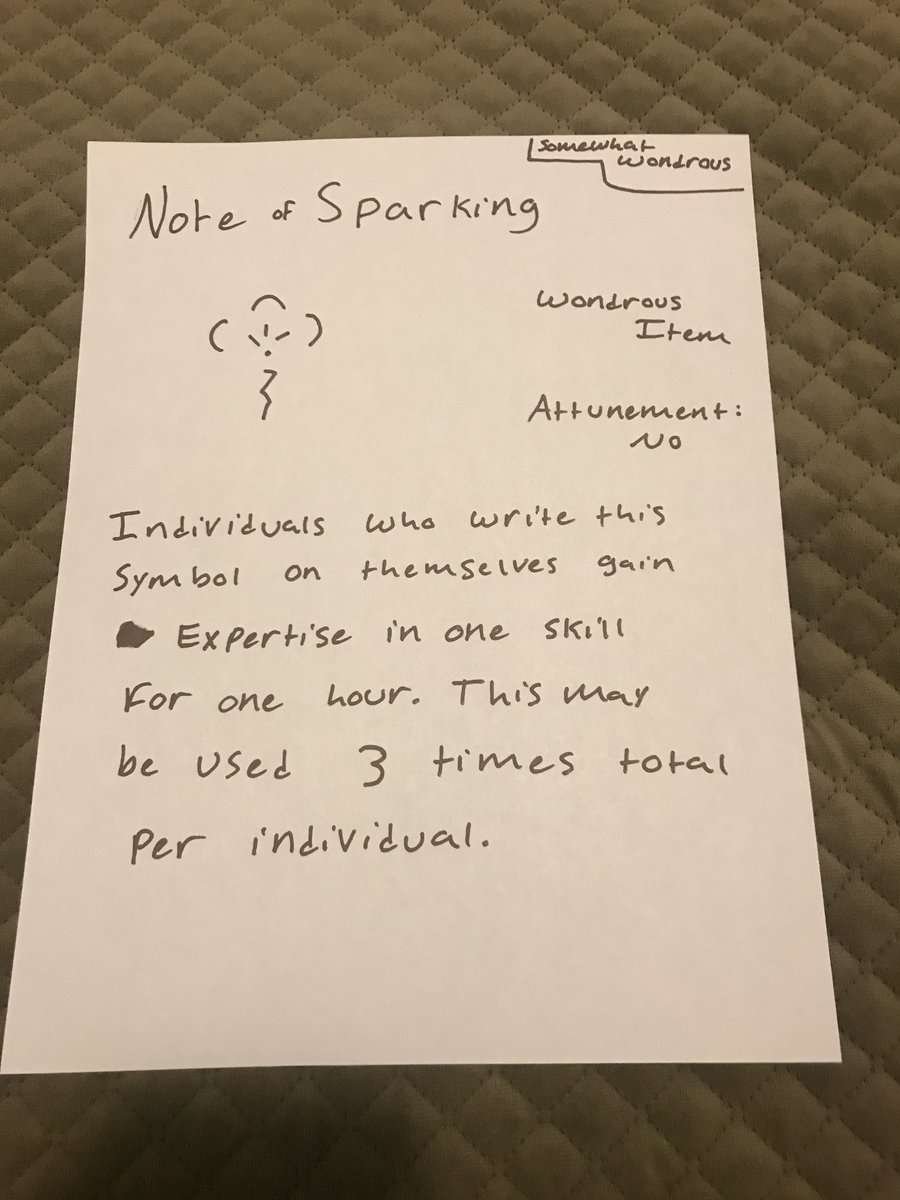 somewhat
wondrous
Note of Sparking
Wondrous
Item
Attunement:
No
Individuals who write this
symbol on themselves gain
Expertise in one skill
For one hour. This may
be used 3 times total
per individual.